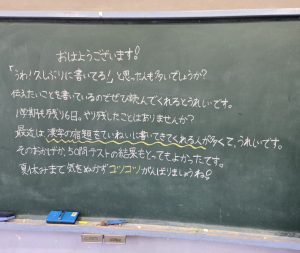 おはようございます!
「うわ!久しぶりに書いてる!」と思った人も多いでしょうか?
伝えたいことを書いているのでぜひ読んでくれるとうれしいです。
1学期も残り6日。やり残したことはありませんか?
最近は、漢字の宿題をていねいに書いてきてくれる人が多くて、うれしいです。
そのおかげか、50問テストの結果もとってもよかったです。
夏休みまで気をぬかずコツコツがんばりましょうね!